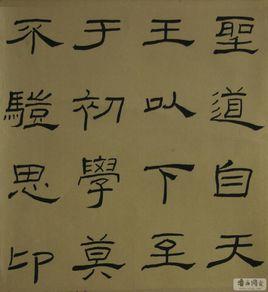 聖道自天
王以下至
于初學莫
不䭲思卬